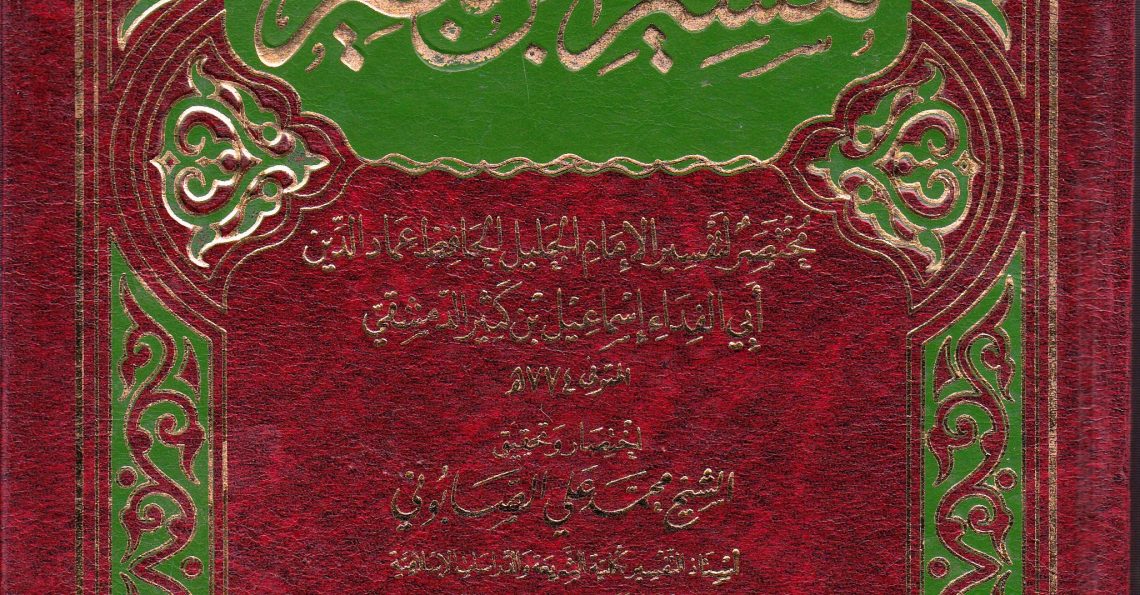 تفسير ابن كثير
مُختصرٌ لتفسير الإمام الجليل الحافظ عماد الدّين
أبي الفداء إسماعيل بن كثير الدمشقيّ
المتوفى ٧٧٤ه
اختصار وتحقيق
الشيخ محمّد علي الصّابوني
أستاذ التفسير بكلية الشريعة والدراسات الإسلاميّة